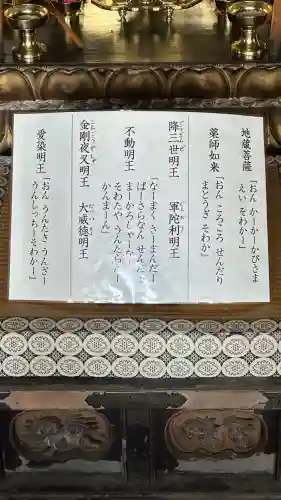 地蔵菩薩
「おん かーかーかびさま
えい そわかー」
薬師如来
「おん ころころ せんだり
まとうぎ そわか」
降三世明王 軍陀利明王
不動明王
「なーまく さーまんだー
ばーさらなん せんだー
まーかろしゃーな
そわたや うんたらたー
かんまーん」
金剛夜叉明王 大威徳明王
愛染明王
「おん うんたき うんざー
うんしっちーそわかー」